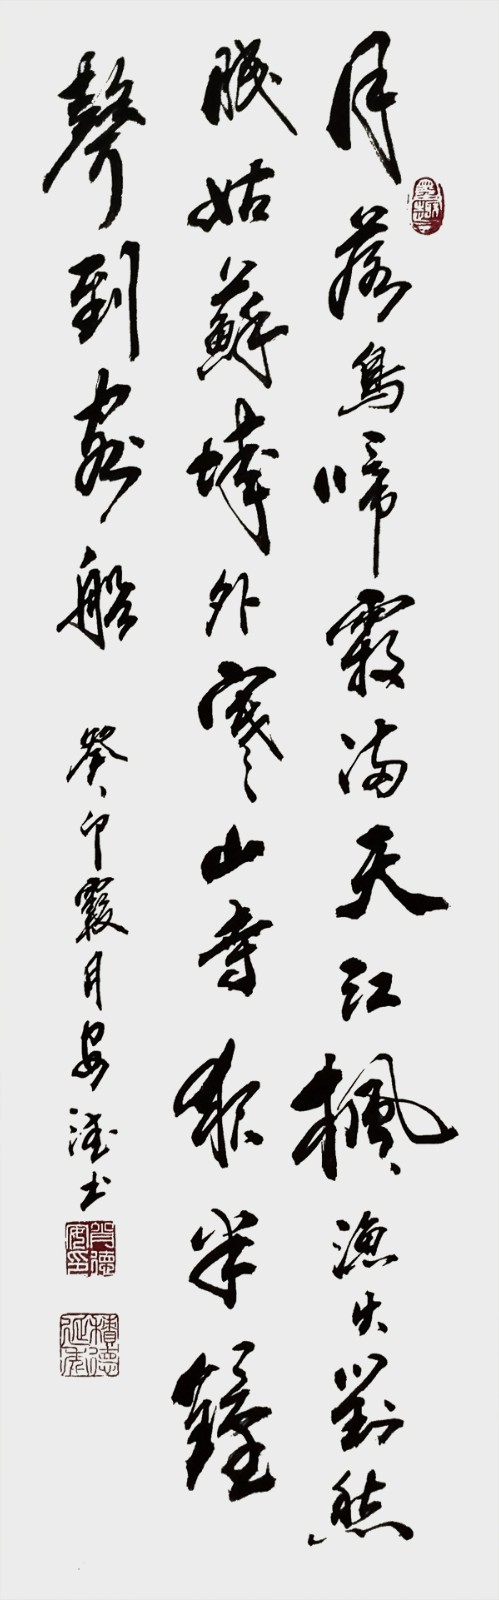 月落烏啼霜滿天江楓漁火對愁
眠姑蘇城外寒山寺夜半鐘
聲到客船 癸卯霞月安德书